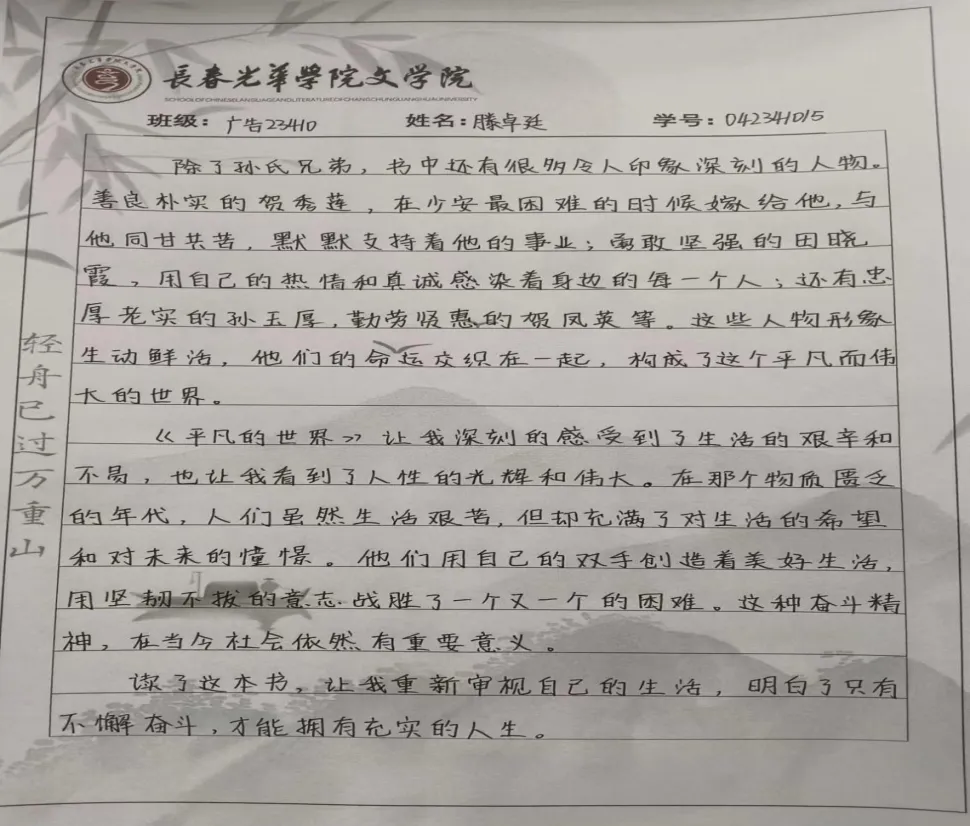 長春光華學院文学院
SCHOOL OF CHINESE LANGUAGE AND LITERATURE OF CHANGCHUN GUANGHUA UNIVERSITY
班级：广告23410 姓名：滕卓廷 学号：042341015
除了孙氏兄弟，书中还有很多令人印象深刻的人物。
善良朴实的贺秀莲，在少安最困难的时候嫁给他，与
他同甘共苦，默默支持着他的事业；勇敢坚强的田晓
霞，用自己的热情和真诚感染着身边的每一个人；还有忠
厚老实的孙玉厚，勤劳贤惠的贺凤英等。这些人物形象
生动鲜活，他们的命运交织在一起，构成了这个平凡而伟
大的世界。
《平凡的世界》让我深刻的感受到了生活的艰辛和
不易，也让我看到了人性的光辉和伟大。在那个物质匮乏
的年代，人们虽然生活艰苦，但却充满了对生活的希望
和对未来的憧憬。他们用自己的双手创造着美好生活，
用坚韧不拔的意志战胜了一个又一个的困难。这种奋斗精
神，在当今社会依然有重要意义。
读了这本书，让我重新审视自己的生活，明白了只有
不懈奋斗，才能拥有充实的人生。
轻舟已过万重山